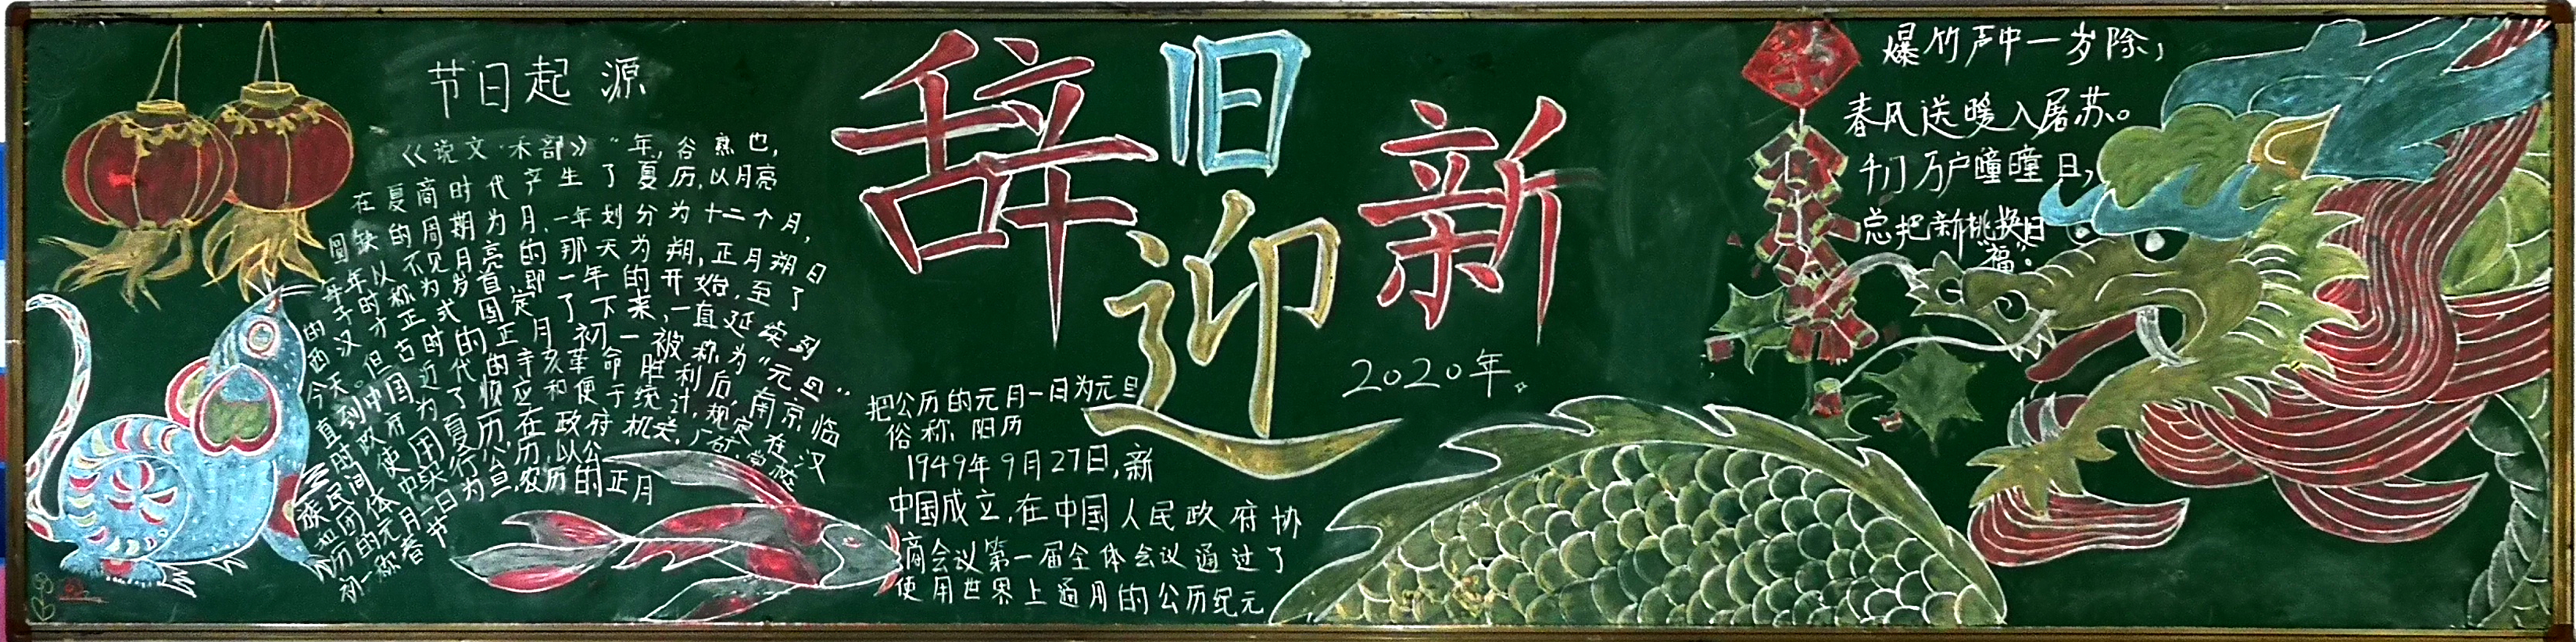 节日起源
《说文·禾部》"年,谷熟也,
在夏商时代产生了夏历,以月亮
圆缺的周期为月,一年划分为十二个月,
每年以不见月亮的那天为朔,正月朔日
的子时称为岁首,即一年的开始,至了
西汉才正式固定了下来,一直延续到
今天。但古时的正月初一被称为"元旦"
直到中国近代的辛亥革命胜利后,南京临
时政府为了顺应和便于统计,规定在汉
族民间使用夏历,在政府机关,厂矿,学校
和团体中实行公历,以公
历的元月一日为元旦,农历的正月
初一称春节
辞旧迎新
2020年。
把公历的元月一日为元旦
俗称,阳历
1949年9月27日,新
中国成立,在中国人民政府协
商会议第一届全体会议通过了
使用世界上通用的公历纪元
爆竹声中一岁除,
春风送暖入屠苏。
千门万户瞳瞳日,
总把新桃换旧
"福"。